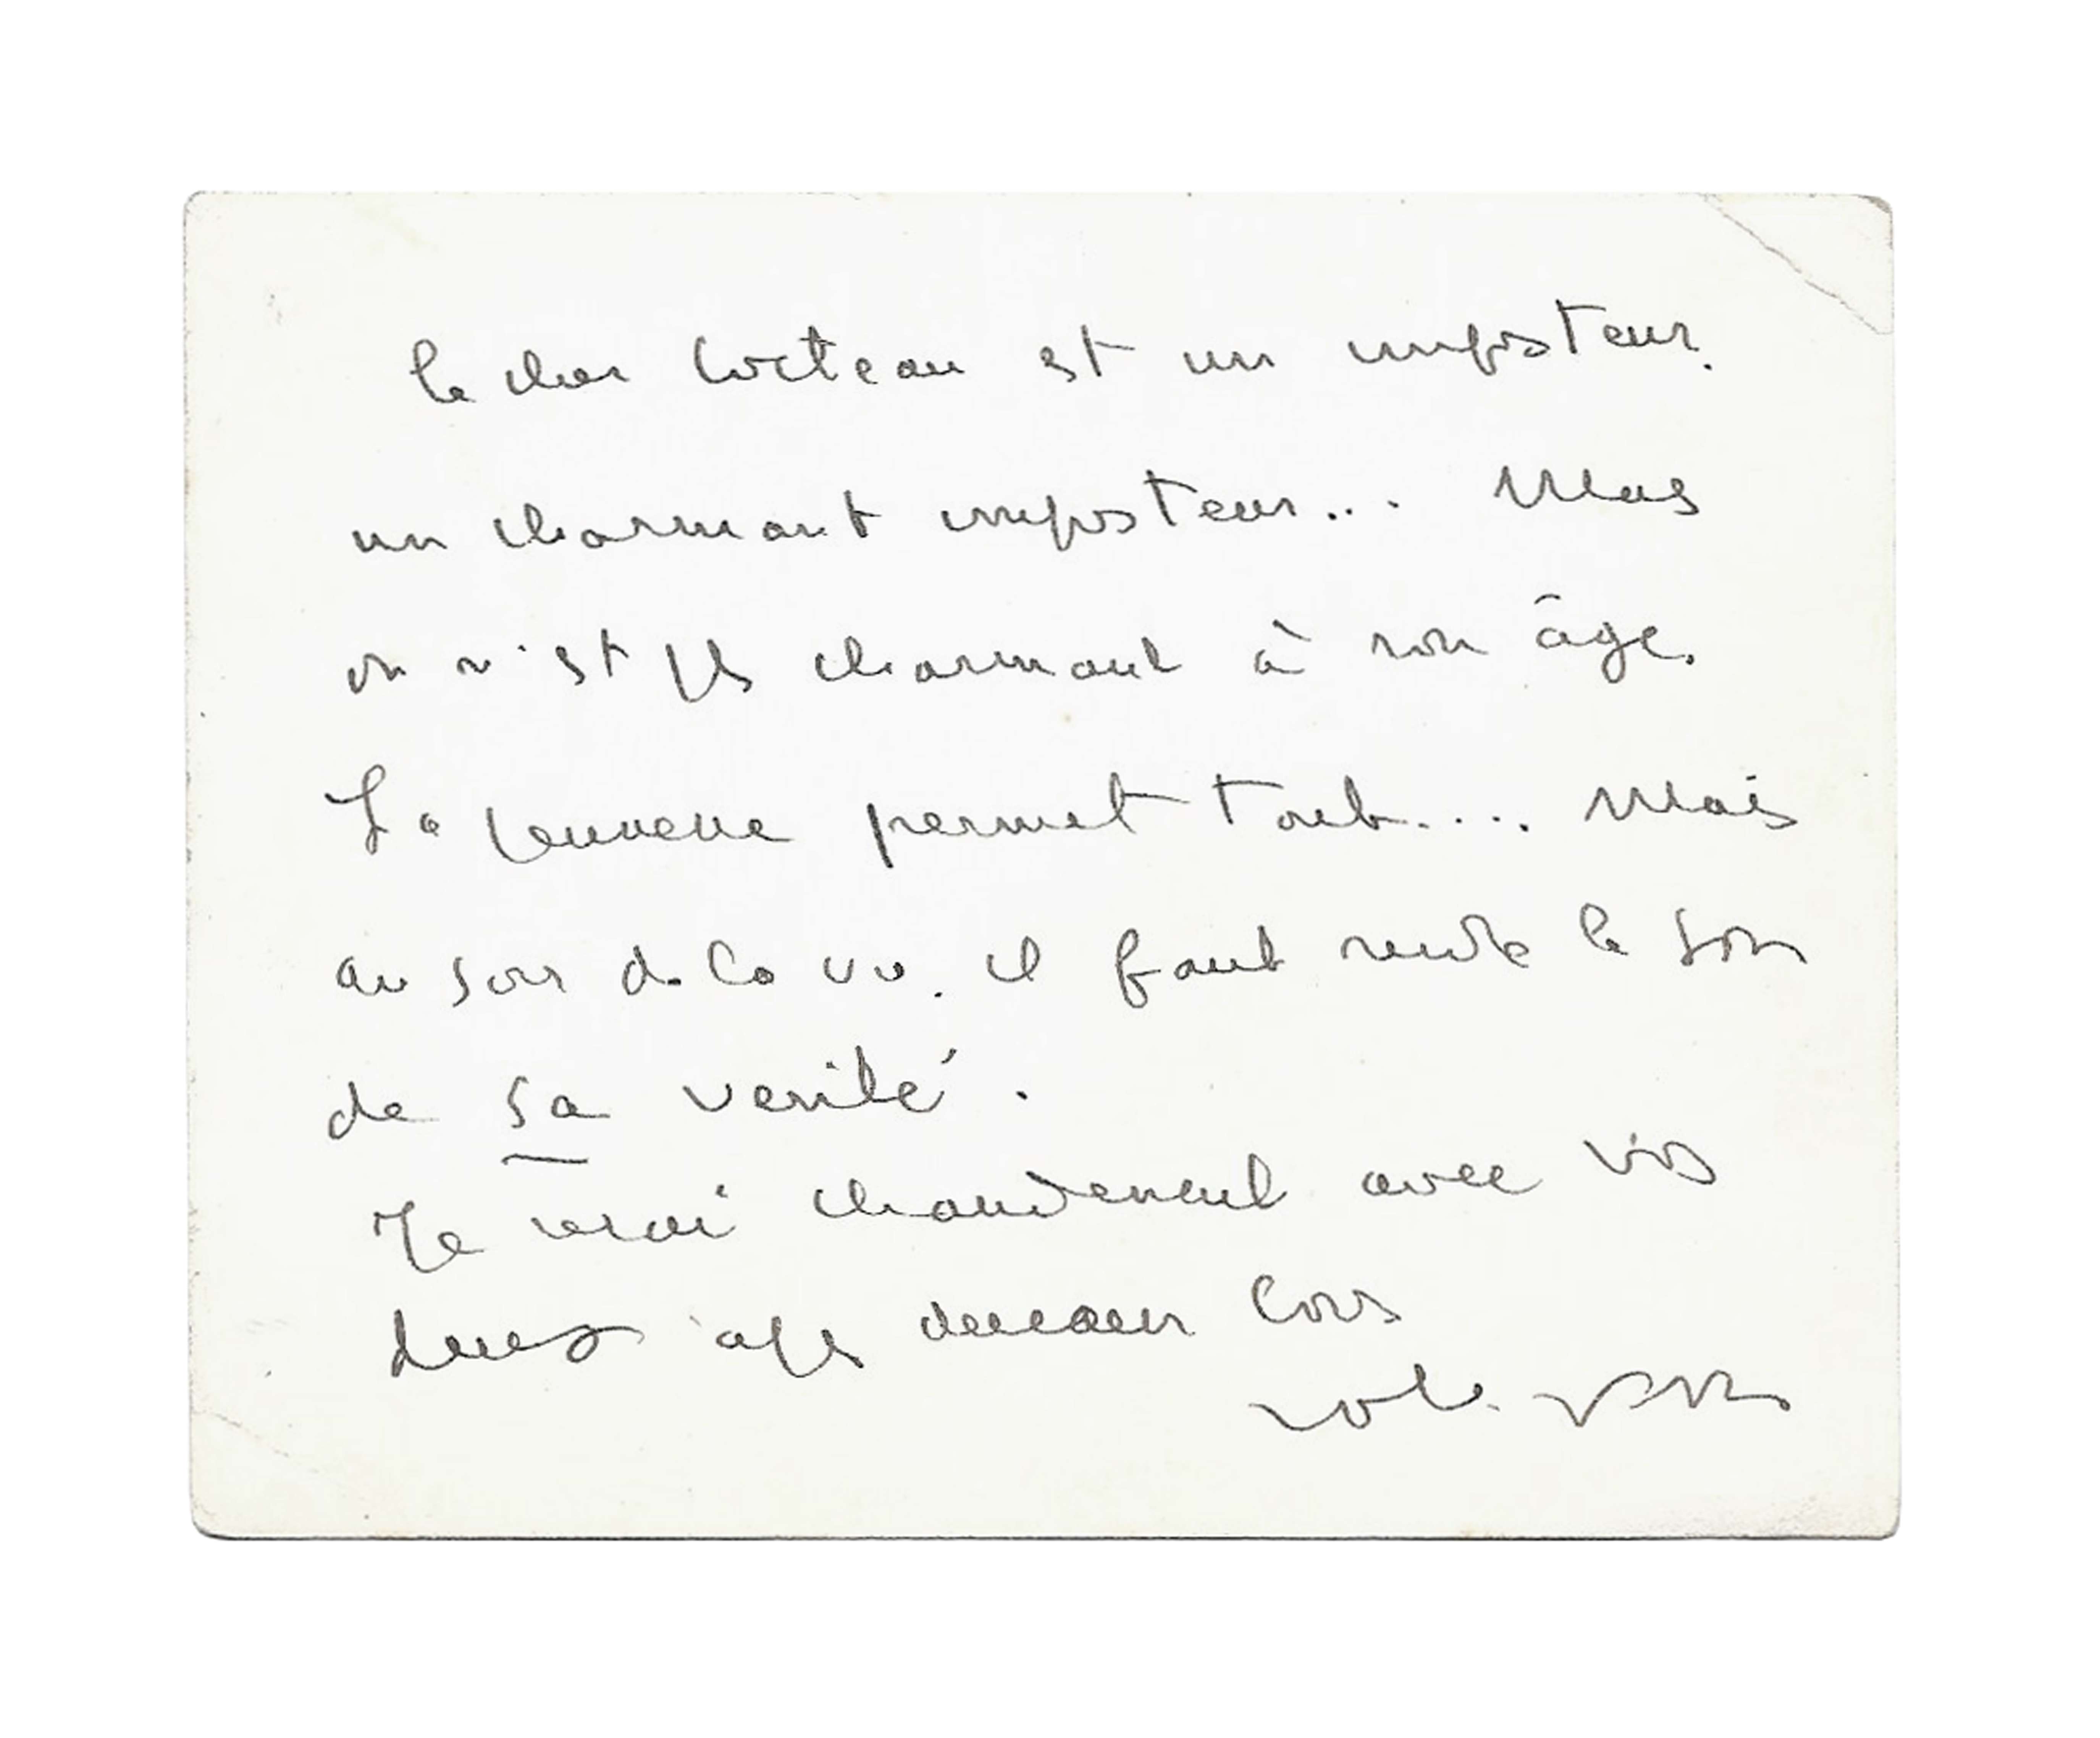 le cher Cocteau est un imposteur.
un charmant imposteur... Mais
on n'est plus charmant à son âge.
La jeunesse permet tout.... Mais
au soir de la vie. il faut rendre le son
de sa verité.
Je serai chaudement avec vous
demain